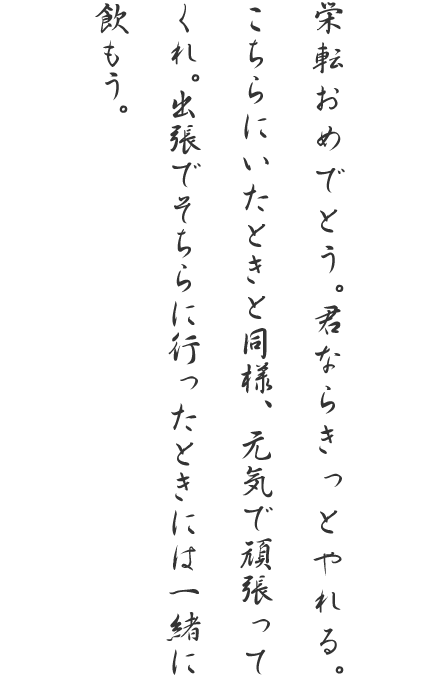 栄転おめでとう。君ならきっとやれる。
こちらにいたときと同様、元気で頑張って
くれ。出張でそちらに行ったときには一緒に
飲もう。